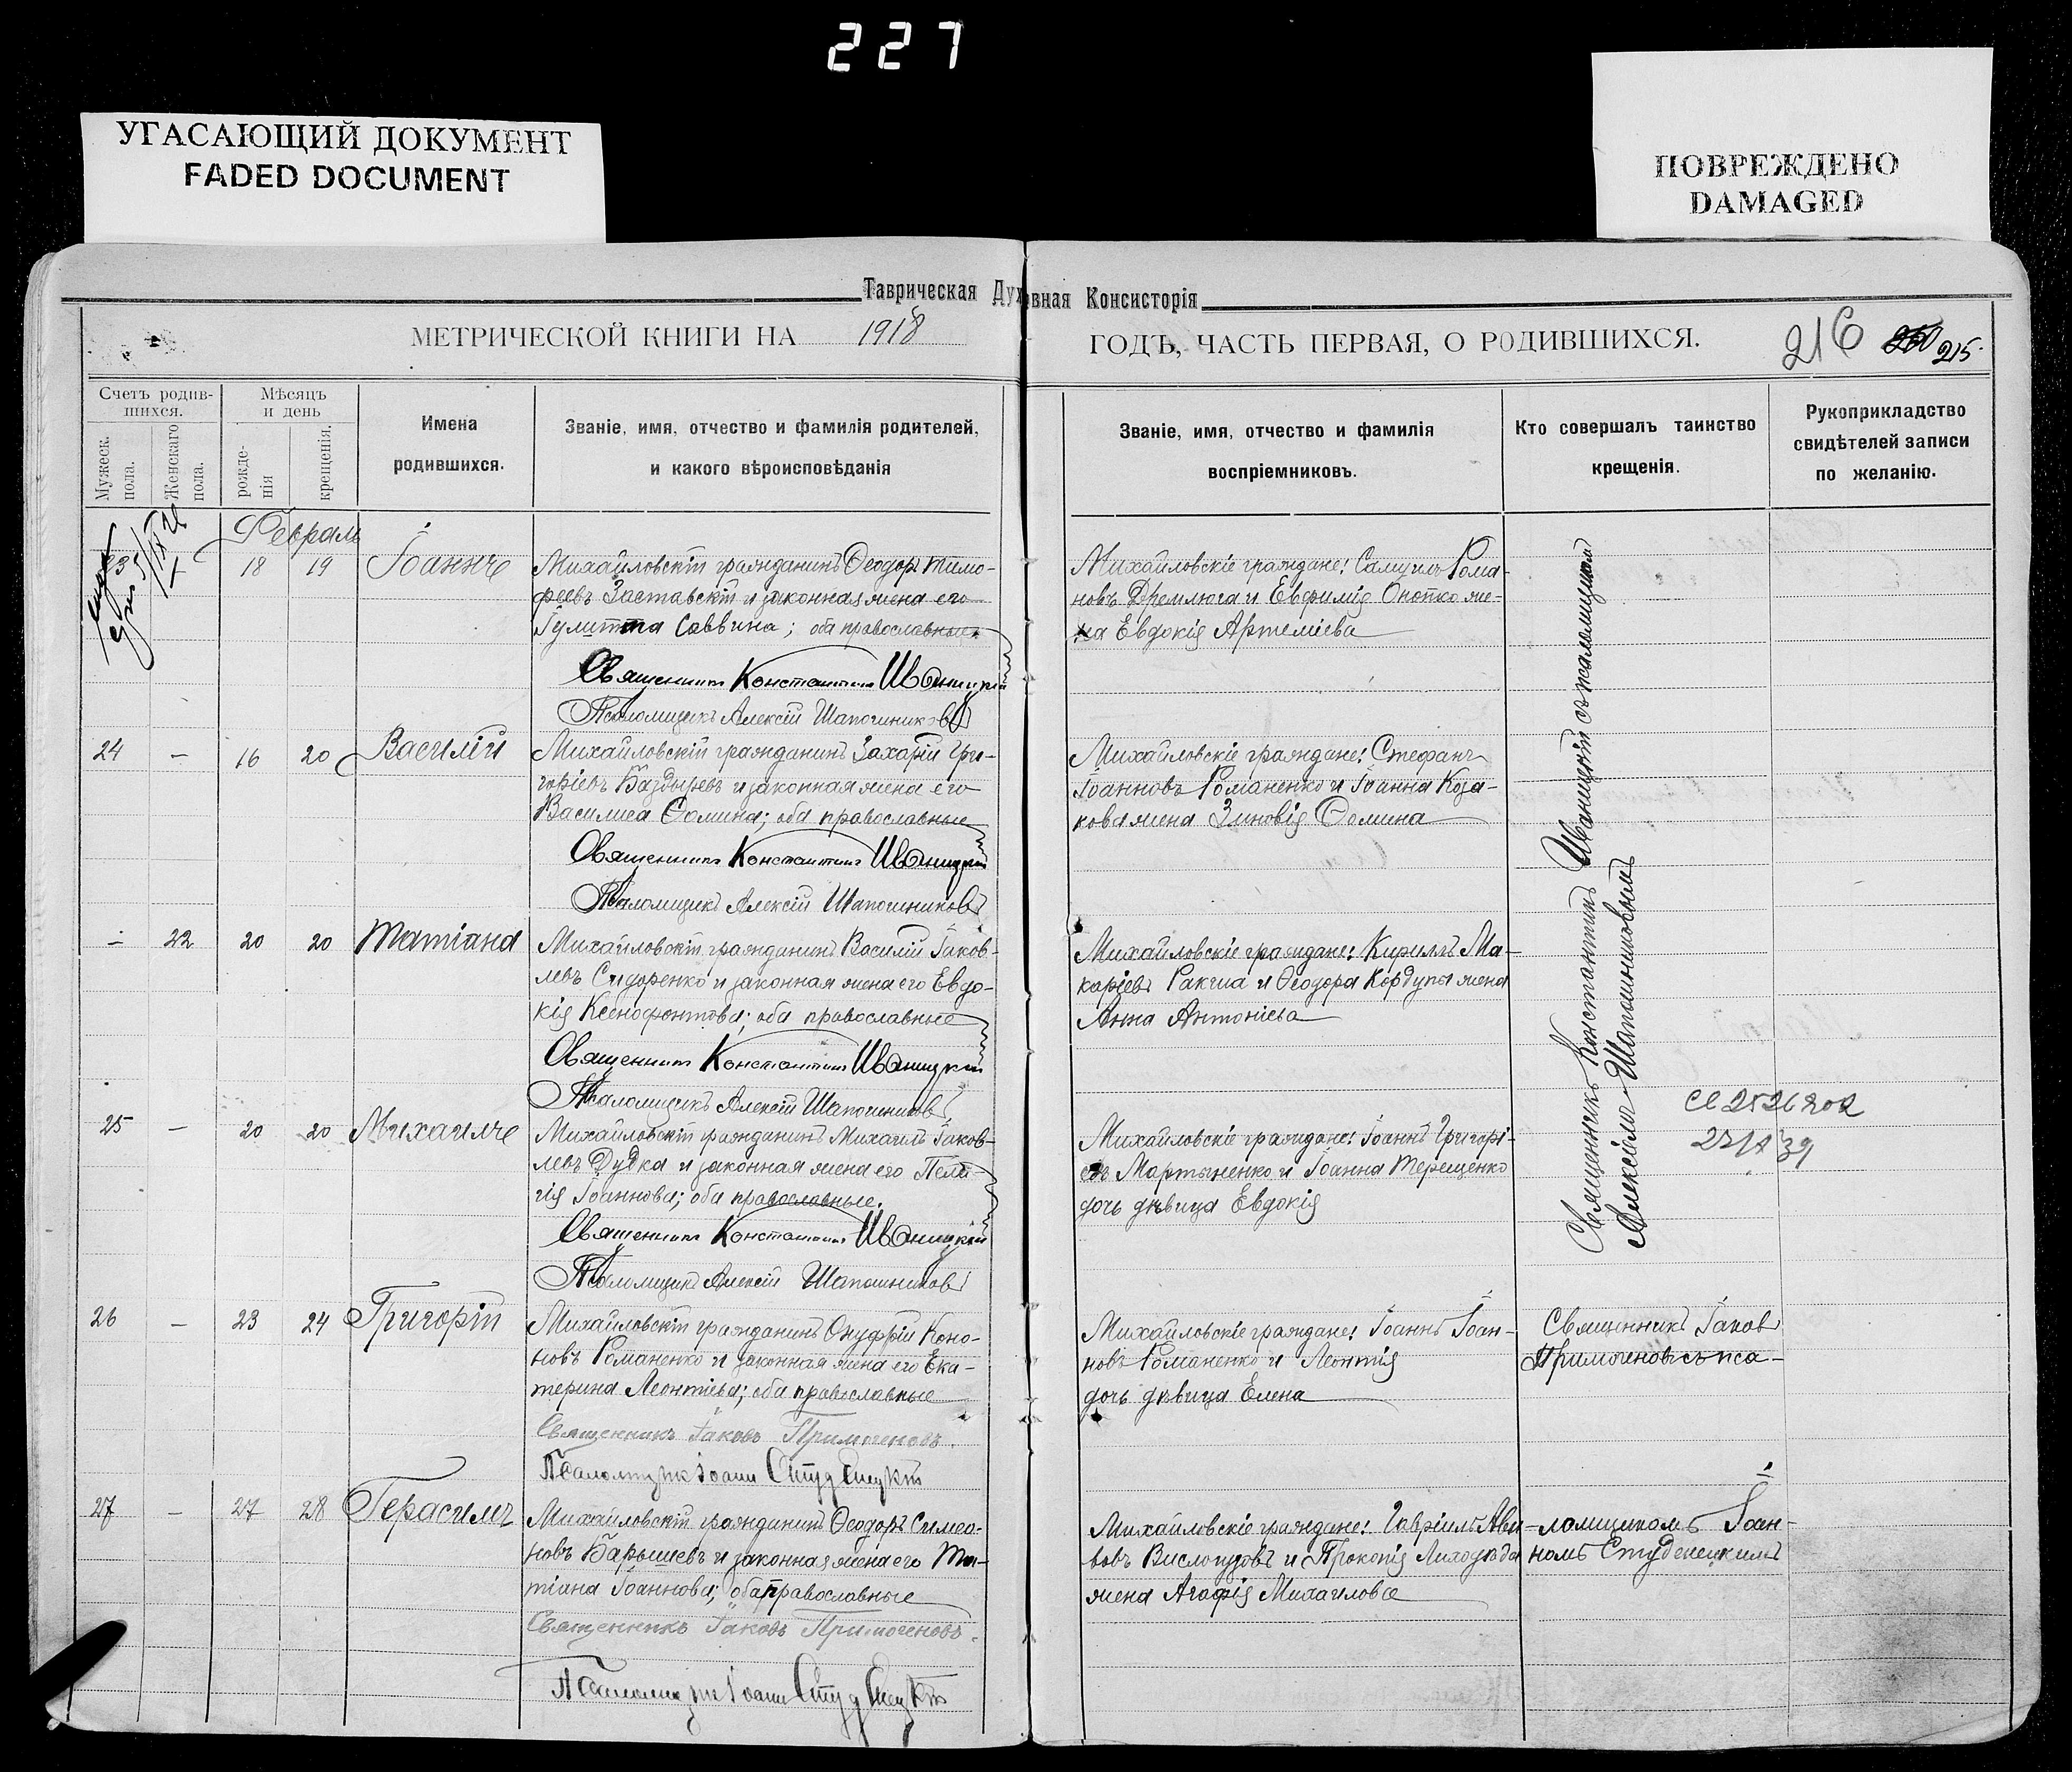 227
УГАСАЮЩИЙ ДОКУМЕНТ
FADED DOCUMENT
ПОВРЕЖДЕНО
DAMAGED
Таврическая Духовная Консисторія
МЕТРИЧЕСКОЙ КНИГИ НА 1918
ГОДЪ, ЧАСТЬ ПЕРВАЯ, О РОДИВШИХСЯ.
216
215.
Счетъ родив-
шихся.
Мужеск.
пола.
Женскаго
пола.
Мѣсяцъ
и день
рожде-
нія
крещенія.
Имена
родившихся.
Званіе, имя, отчество и фамилія родителей,
и какого вѣроисповѣданія
Званіе, имя, отчество и фамилія
воспріемниковъ.
Кто совершалъ таинство
крещенія.
Рукоприкладство
свидѣтелей записи
по желанію.
Февраль
23 18 19 Іоаннъ
Михайловскій гражданинъ Ѳеодоръ Тимо-
феевъ Заставскій и законная жена его
Іулитта Саввина; оба православные
Священникъ Константинъ Иваницкій
Псаломщикъ Алексій Шапошниковъ
Михайловскіе граждане: Самуилъ Рома-
новъ Дремлюга и Евфимія Онопко же-
на Евдокія Артеміева
24 — 16 20 Василій
Михайловскій гражданинъ Захарій Гри-
горіевъ Баздыревъ и законная жена его
Василиса Ѳомина; оба православные
Священникъ Константинъ Иваницкій
Псаломщикъ Алексій Шапошниковъ
Михайловскіе граждане: Стефанъ
Іоанновъ Романенко и Іоанна Коза-
кова жена Зиновія Ѳомина
— 22 20 20 Татіана
Михайловскій гражданинъ Василій Іаков-
левъ Сидоренко и законная жена его Евдо-
кія Ксенофонтова; оба православные
Священникъ Константинъ Иваницкій
Псаломщикъ Алексій Шапошниковъ
Михайловскіе граждане: Кириллъ Ма-
каріевъ Ракша и Ѳеодора Кордупы жена
Анна Антоніева
25 — 20 20 Михаилъ
Михайловскій гражданинъ Михаилъ Іаков-
левъ Дудка и законная жена его Пела-
гія Іоаннова; оба православные.
Священникъ Константинъ Иваницкій
Псаломщикъ Алексій Шапошниковъ
Михайловскіе граждане: Іоаннъ Григорі-
евъ Мартыненко и Іоанна Терещенко
дочь дѣвица Евдокія
Священникъ Константинъ Иваницкій съ псаломщикомъ
Алексіемъ Шапошниковымъ
26 — 23 24 Григорій
Михайловскій гражданинъ Онуфрій Коно-
новъ Романенко и законная жена его Ека-
терина Леонтіева; оба православные
Священникъ Іаковъ Примогеновъ.
Псаломщикъ Іоаннъ Студенецкій
Михайловскіе граждане: Іоаннъ Іоан-
новъ Романенко и Леонтія
дочь дѣвица Елена
Священникъ Іаковъ
Примогеновъ съ пса-
27 — 27 28 Герасимъ
Михайловскій гражданинъ Ѳеодоръ Симео-
новъ Барышевъ и законная жена его Та-
тіана Іоаннова; оба православные
Священникъ Іаковъ Примогеновъ.
Псаломщикъ Іоаннъ Студенецкій
Михайловскіе граждане: Гавріилъ
и Прокопія
жена Агафія Михаилова
ломщикомъ Іоан-
номъ Студенецкимъ